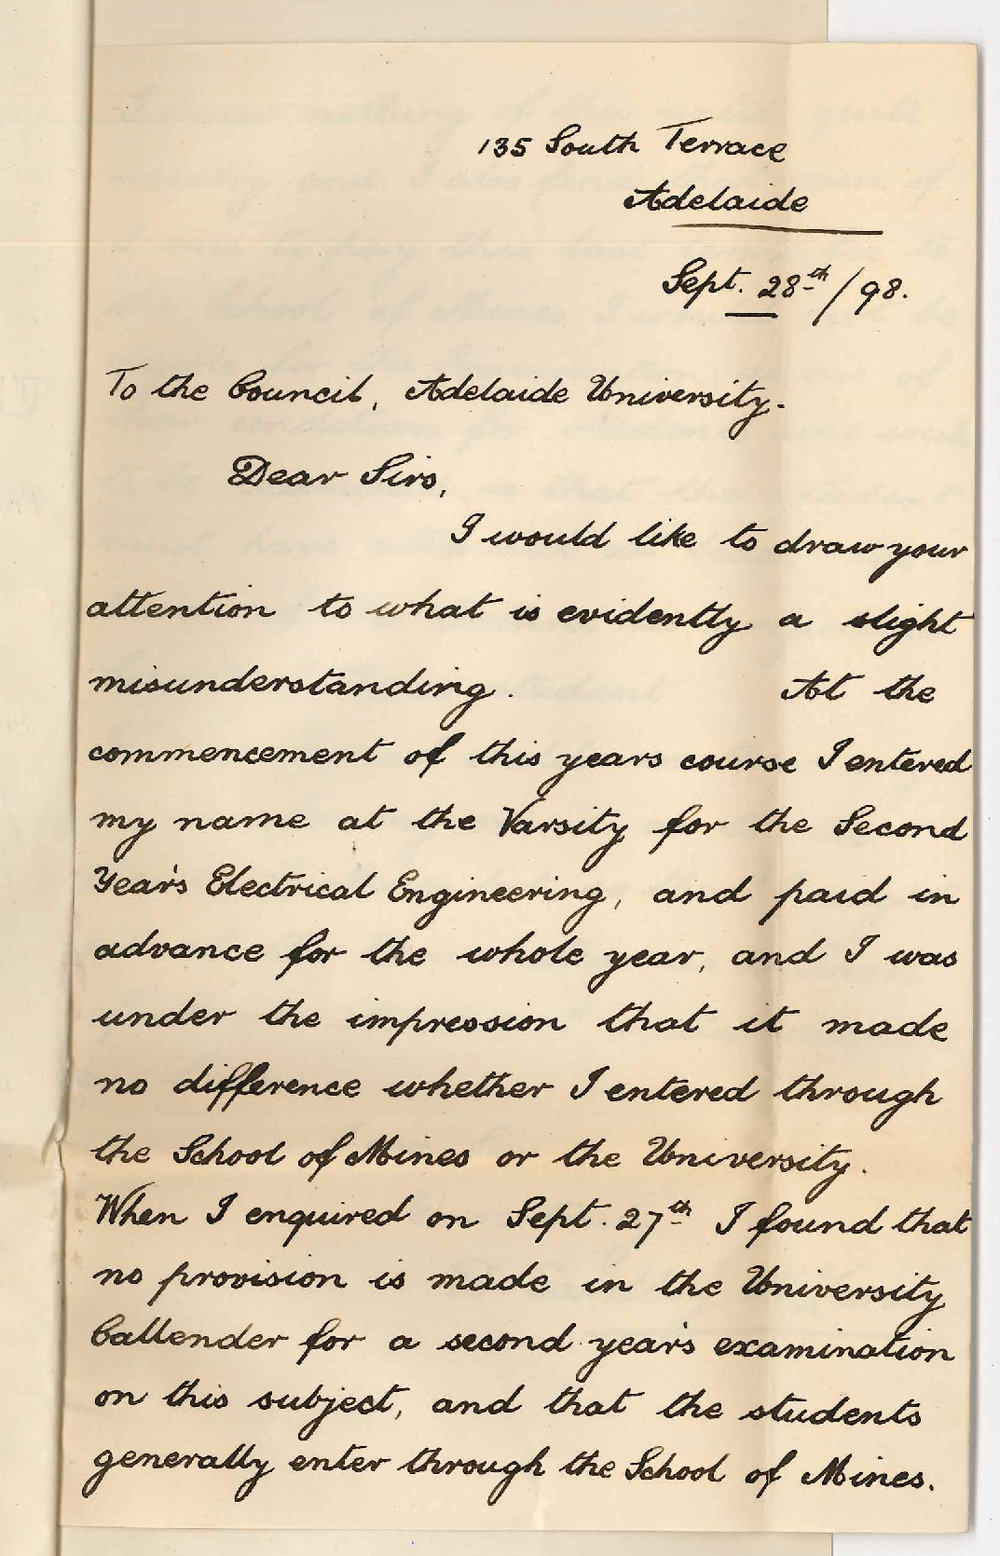 135 South Terrace
Adelaide
Sept. 28th/98.
To the Council, Adelaide University.
Dear Sirs,
I would like to draw your
attention to what is evidently a slight
misunderstanding. At the
commencement of this years course I entered
my name at the Varsity for the Second
Year's Electrical Engineering, and paid in
advance for the whole year, and I was
under the impression that it made
no difference whether I entered through
the School of Mines or the University.
When I enquired on Sept. 27th I found that
no provision is made in the University
Callender for a second year's examination
on this subject, and that the students
generally enter through the School of Mines.